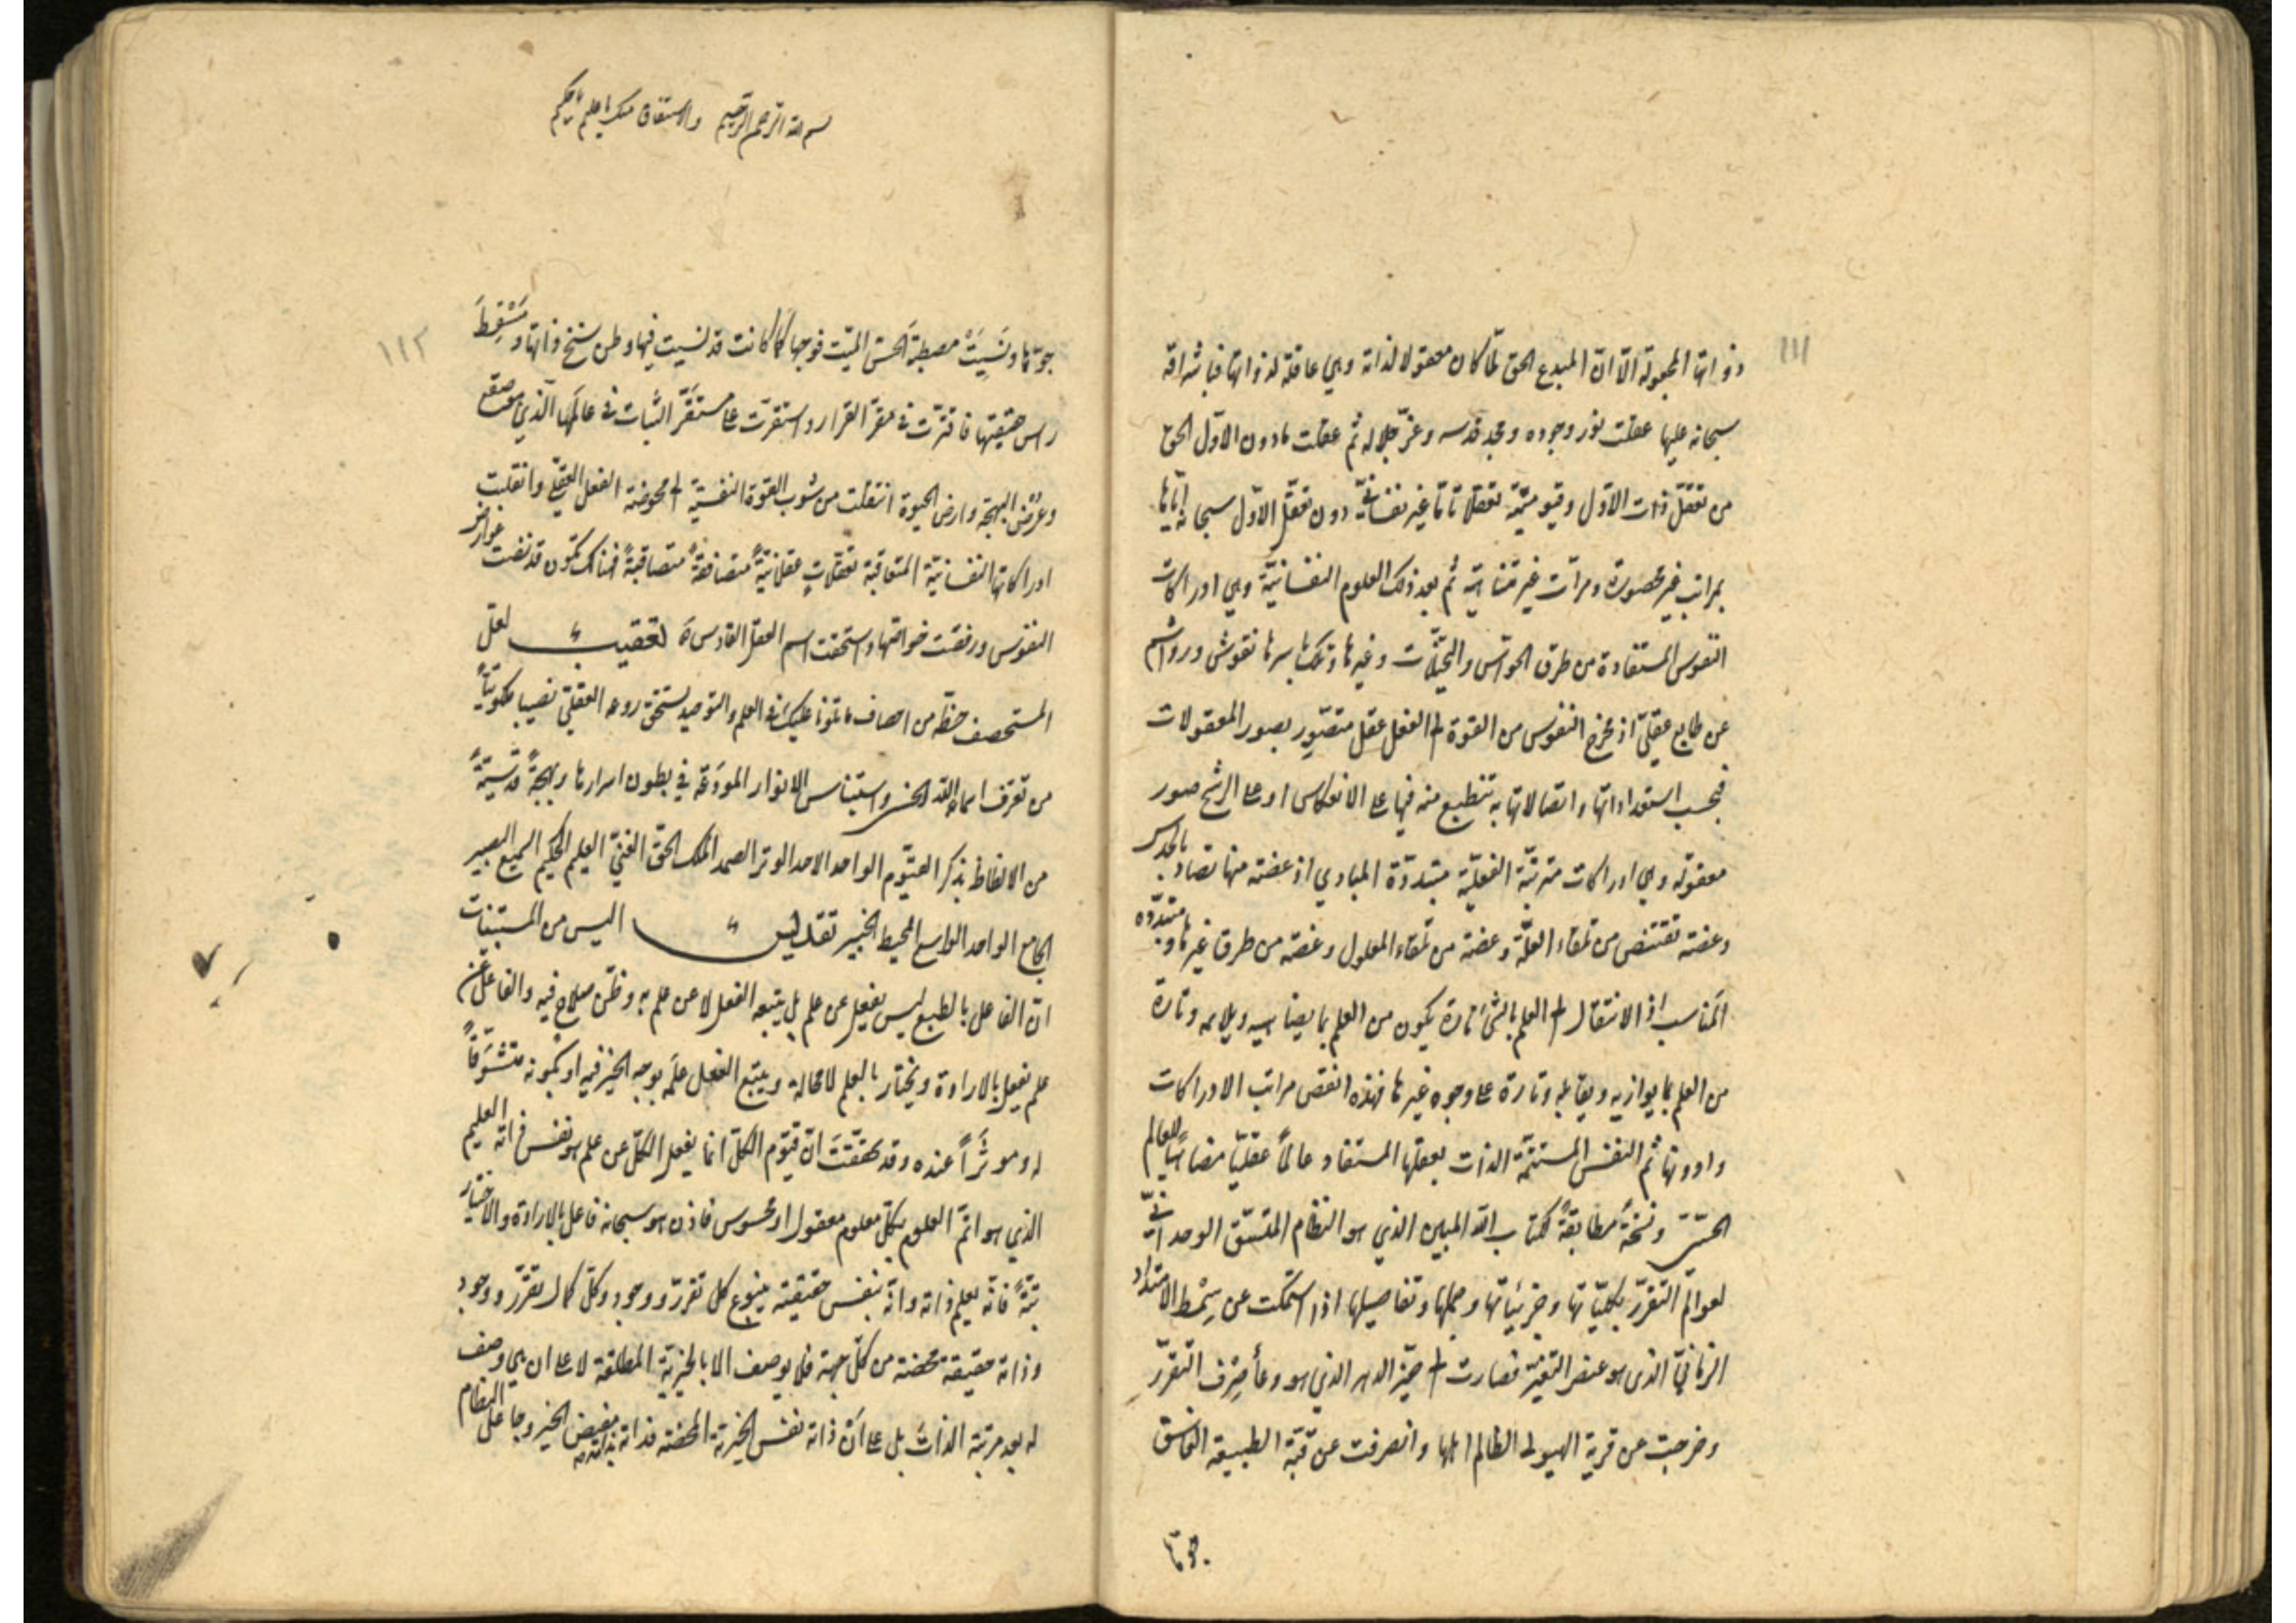 ١١١
ذواتها المجعولة الّا انّ المبدع الحق لمّا كان معقولا لذاته وهي عاقلة لذواتها فباشراقه
سبحانه عليها عقلت نور وجوده ومجد قدسه وعزّ جلاله ثم عقلت مادون الاوّل الحق
من تعقّل ذات الاوّل وقيوميّته تعقلا تاما غير نفسانيّ دون تعقّل الاوّل سبحانه ايّاها
بمراتب غير محصورة ومرّات غير متناهية ثم بعد ذلك العلوم النفسانيّة وهي ادراكات
النفوس المستفادة من طرق الحواسّ والتخيّلات وغيرها وتلك باسرها نقوش ورواشم
عن طابع عقليّ اذ مخرج النفوس من القوة الى الفعل عقل متصوّر بصور المعقولات
فبحسب استعداداتها واتصالاتها به تنطبع منه فيها على الانعكاس او على الرشح صور
معقولة وهي ادراكات مترتبّة الفعليّة متبددّة المبادي اذ عضة منها تصاد بالحدس
وعضة تقتنص من تلقاء العلّة وعضة من تلقاء المعلول وعضة من طرق غيرها متبدّدة
المناسب اذ الانتقال الى العلم بالشئ تارة يكون من العلم بما يناسبه ويلايمه وتارة
من العلم بما يوازيه ويقابله وتارة على وجوه غيرها فهذه انقص مراتب الادراكات
وادونها ثم النفس المستتمّة الذات بعقلها المستفاد عالمًا عقليّا مضاهيًا للعالم
الحسّي ونسخةً مطابقةً لكتاب الله المبين الذي هو النظام المتّسق الوحدانيّ
لعوالم التقرّر بكليّاتها وجزئياتها وجملها وتفاصيلها اذا استمكت عن سِمْط الامتداد
الزمانيّ الذى هو عنصر التغيّر فصارت الى حيّز الدهر الذي هو وعاء صِرْف التقرّر
وخرجت عن قرية الهيولى الظالم اهلها وانصرفت عن قبّة الطبيعة الفاسق
جوّها
بسم الله الرحمن الرحيم والاستفاق منك يا عليم يا حكيم
١١٢
جوّها ونَسِيَتْ مصطبة الحسّ الميّت فوجها كما كانت قد نسيت فيها وطن سنخ ذاتها ومَسْقِطَ
راس حقيقتها فاقترّت في مقرّ القرار واستقرّت على مستقَرّ الثبات في عالمها الّذي هو صقع
وعرْض البهجة وارض الحيوة انتقلت من شوب القوة النفسيّة الى محوضة الفعل العقليّ وانقلبت
ادراكاتها النفسانيّة المتعاقبة تعقلاتٍ عقلانيّةً متصافقةً متصاقبةً فهناك تكون قد نضت عوارض
النفوس ورفضت خواصّها واستحقت اسم العقل القادس ة تعقيب لعلّ
المستحصف حظّه من احصاف ما تلونا عليك في العلم والتوحيد يستحق روعه العقليّ نصيبا ملكوتيًا
من تعرّف اسماء الله الحسنى واستيناس الانوار المودَعة في بطون اسرارها وبهجةً قدسيّةً
من الالفاظ بذكر القيّوم الواحد الاحد الوتر الصمد الملك الحق الغنيّ العليم الحكيم السميع البصير
الجامع الواحد الواسع المحيط الخبير تقديس اليس من المستبينات
انّ الفاعل بالطبع ليس يفعل عن علم بل يتبعه الفعل لا عن علم به وظنّ صلاح فيه والفاعل عن
علم يفعل بالارادة ويختار بالعلم لا محالة ويتبع الفعل علمَه بوجه الخير فيه او بكونه متشوَّقًا
له وموثَرًا عنده وقد تحققتَ انّ قيّوم الكلّ انما يفعل الكلّ عن علم هو نفس ذاته العليم
الذي هو اتمّ العلوم بكلّ معلوم معقول او محسوس فاذن هو سبحانه فاعل بالارادة والاختيار
بتّةً فانّه يعلم ذاته وانّه بنفس حقيقته ينبوع كل تقرّر ووجود وكلّ كمال تقرّر ووجود
وذاته حقيقة محضة من كلّ جهة فلا يوصف الا بالخيريّة المطلقة لا على ان هي وصف
له بعد مرتبة الذات بل على انّ ذاته نفس الخيريّة المحضة فذاته بذاته مفيض الخير وجاعل النظام